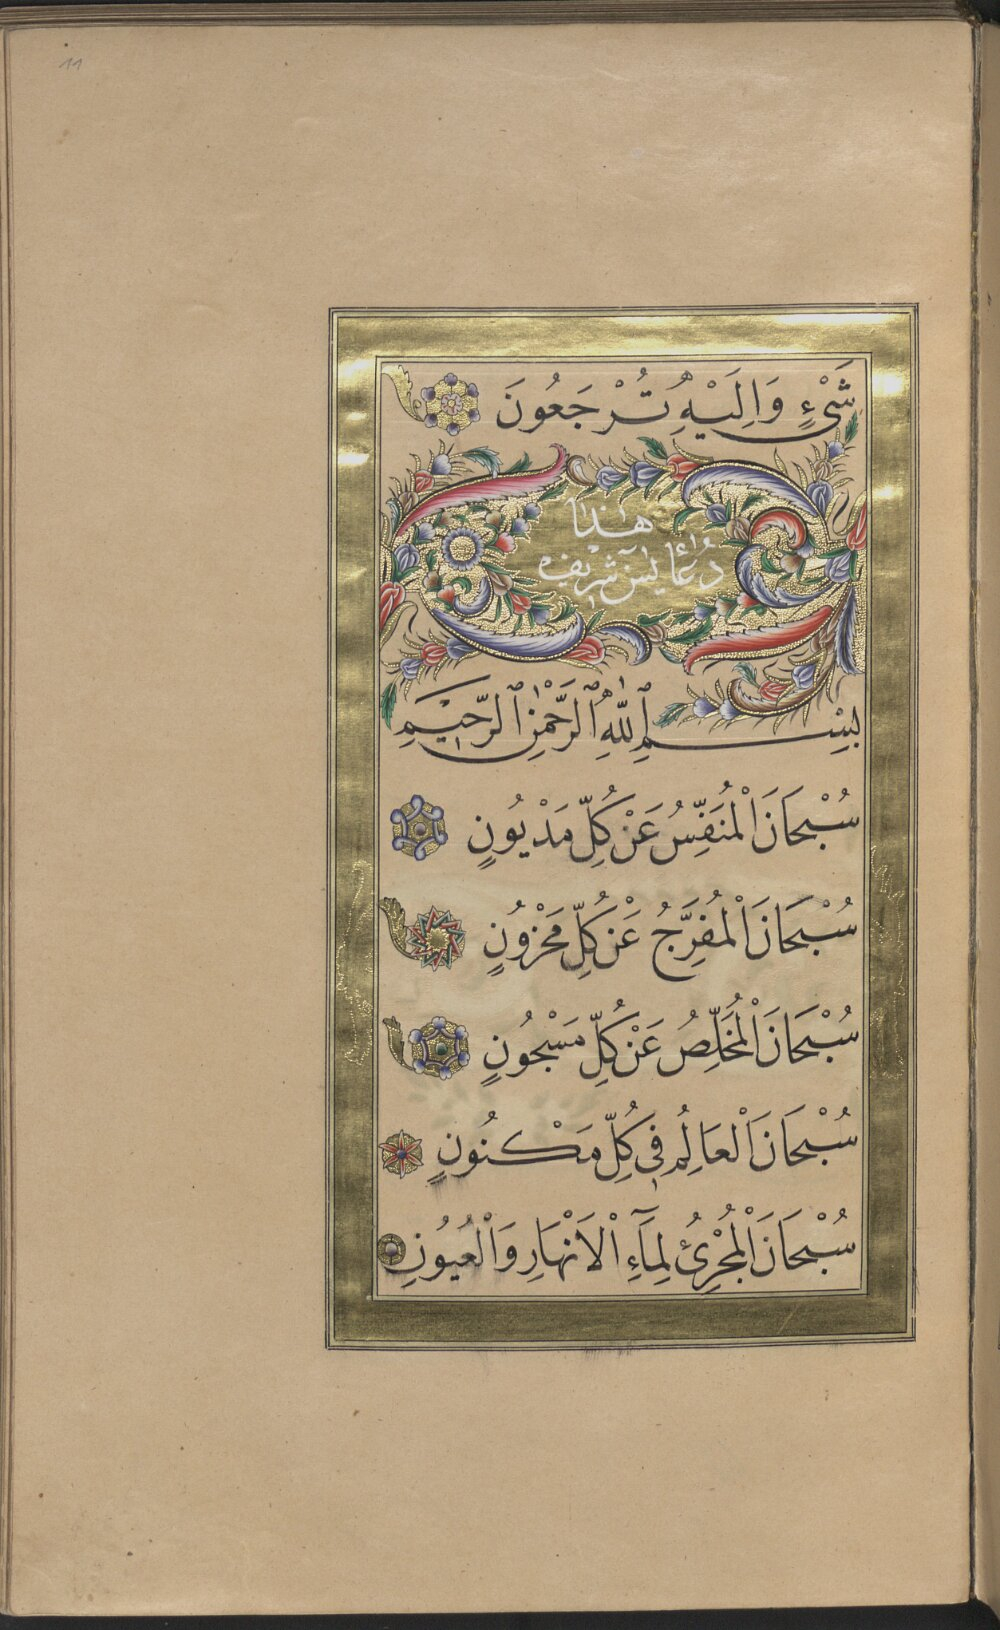 11
شَيْءٍ وَاِلَيْهِ تُرْجَعُونَ
هٰذَا
دُعَاءِ يٰسٓ شَرِيفِهْ
بِسْمِ اللّٰهِ الرَّحْمٰنِ الرَّحِيمِ
سُبْحَانَ الْمُنَفِّسُ عَنْ كُلِّ مَدْيُونٍ
سُبْحَانَ الْمُفَرِّجُ عَنْ كُلِّ مَحْزُونٍ
سُبْحَانَ الْمُخَلِّصُ عَنْ كُلِّ مَسْجُونٍ
سُبْحَانَ الْعَالِمُ فِي كُلِّ مَكْنُونٍ
سُبْحَانَ الْمُجْرِئُ لِمَآءِ الْاَنْهَارِ وَالْعُيُونِ